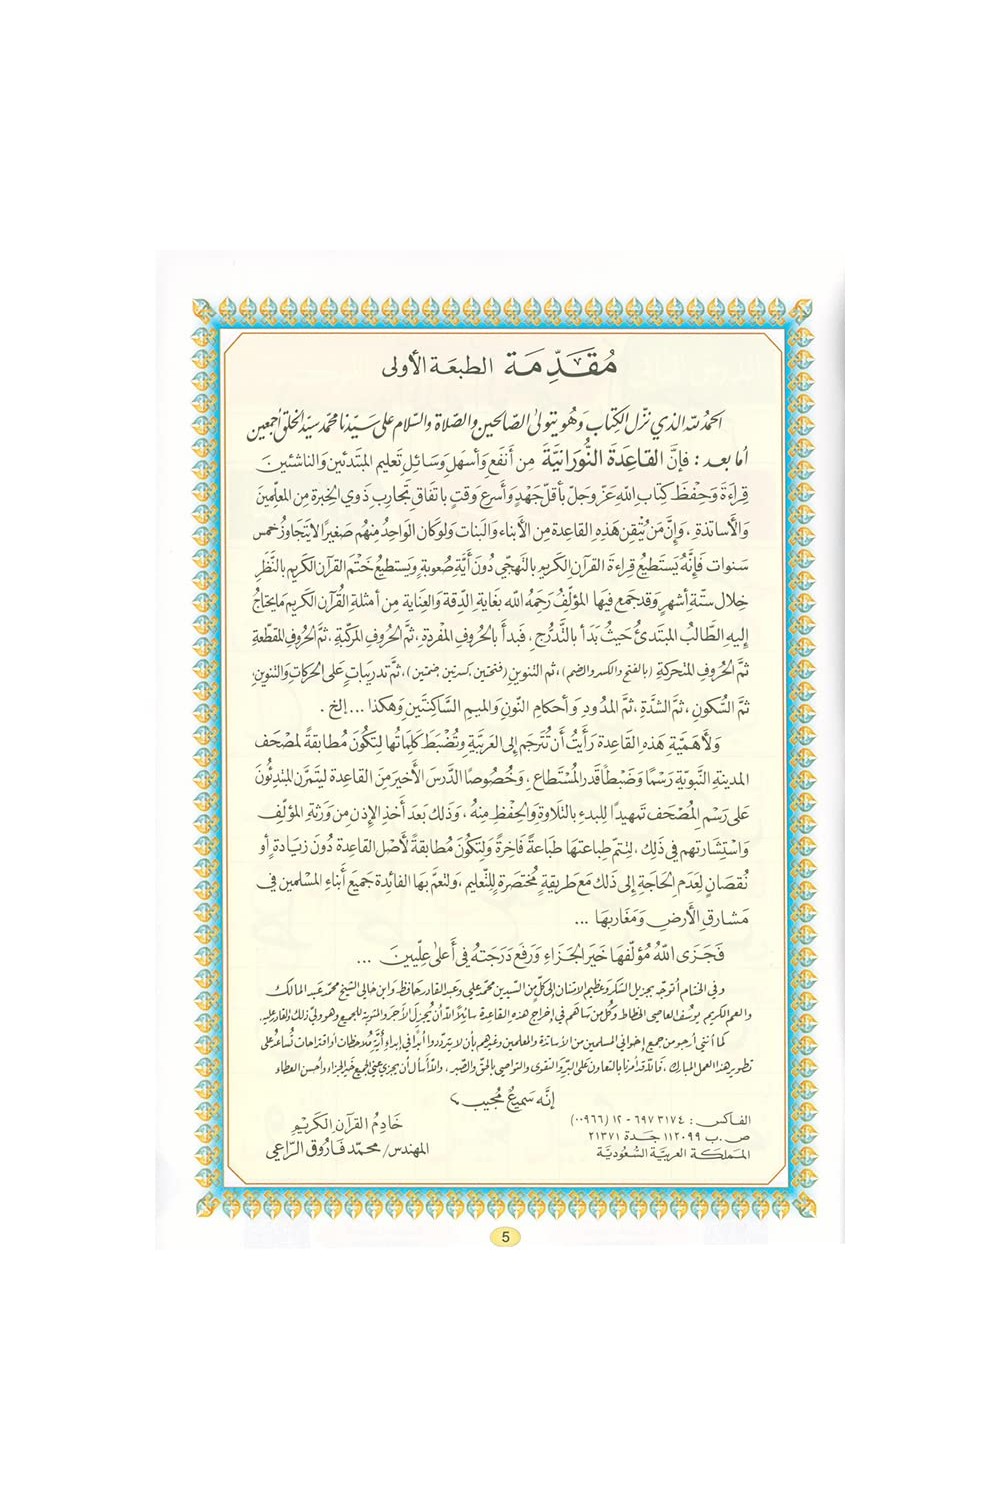 مُقَدِّمَة الطبعَة الأولى
الحمدُ للّه الذي نزّل الكِتابَ وَهُو يتولىٰ الصّالحين والصّلاة والسّلام على سَيّدنا محمّد سيّد الخلق أجمعين
أما بعد : فإنَّ القَاعِدَة النُّورَانيَّة مِن أنفَعِ وَأسهلِ وَسَائلِ تَعليم المبتَدئين وَالناشئين
قِراءَةَ وَحِفظَ كِتابِ اللهِ عَزّ وجلّ بأقلّ جَهدٍ وَأسرَعِ وَقتٍ باتفاقِ تجارب ذَوي الخِبرة مِن المعلّمين
وَالأسَاتذة ، وَإنَّ مَن يُتقِن هَذِهِ القاعدة مِن الأبناء وَالبنات وَلوكان الوَاحِدُ مِنهُم صَغيرًا لا يَتجاوَزُ خمس
سَنوات فَإنَّهُ يَستَطيعُ قِراءة القرآن الكَريم بالتهجّي دُونَ أيَّة صُعوبةٍ وَيستطيعُ خَتْم القرآن الكريم بالنَّظر
خِلال ستّة أشهرٍ وَقد جَمع فيها المؤلّفُ رَحمَهُ الله بغَايةِ الدِّقةِ وَالعِنايةِ مِن أمثلةِ القُرآن الكَريم مَا يحتاجُ
إليهِ الطَّالبُ المبتَدئُ حَيثُ بَدَأ بالتَّدرُّج ، فَبدأ بالحرُوفِ المفردَة ، ثمَّ الحرُوفِ المركّبة ، ثمَّ الحُروفِ المقطّعة
ثمَّ الحُروفِ المتحركةِ (بالفتح والكسر والضم) ، ثم التنوين (فتحتين كسرتين ضمتين) ، ثمَّ تدريبَاتٍ عَلى الحركاتِ وَالتنوين،
ثمَّ السُّكون ، ثمَّ الشدَّةِ ، ثمَّ المدُودِ وَأحكَامِ النّون وَالميمِ السَّاكنَتَين وَهكذا ... إلخ .
وَلأهَمّيَّة هَذِه القَاعدة رَأيْتُ أن تُتَرجَم إلى العَربيَّةِ وَتُضْبَطَ كَلمَاتُها لِتَكُونَ مُطَابقةً لمصْحَف
المدينةِ النَّبويّة رَسْمًا وَضَبطاً قَدر المُسْتَطاع ، وَخُصُوصًا الدَّرسَ الأخيرَ مِنَ القَاعدة ليتمرّن المبْتَدئُونَ
عَلى رَسْم المُصْحَف تَمهيدًا للبَدءِ بالتّلاوَةِ وَالحِفْظِ مِنهُ ، وَذَلك بَعدَ أخذِ الإذنِ مِن وَرثةِ المؤلّف
وَاسْتِشَارتهم في ذَلِك ، لتتمّ طِباعتها طبَاعةً فاخِرةً وَلِتكُونَ مُطابقةً لأصْلِ القَاعدة دُونَ زيَادةٍ أو
نُقصَانٍ لِعَدَمِ الحَاجةِ إلى ذَلك مَع طَريقةٍ مُختَصَرةٍ للتَّعليم ، وَلتعُمَّ بهَا الفائدة جَميعَ أبنَاءِ المسْلمين في
مَشارقِ الأرضِ وَمَغَاربها ...
فَجَزى اللّهُ مُؤلّفهَا خَير الجَزاءِ وَرَفعَ دَرَجتَهُ في أعلى علِّيينَ ...
وفي الختام أتوجّه بجزيل الشكر وعظيم الامتنان إلى كلٍّ من السّيدين محمّد علي وعبد القادر حافظ وابن خالي الشّيخ محمّد عَبد المالك
والعم الكريم يوسُف العاصي الخطاط وكُل من سَاهَم في إخراج هَذه القَاعدة سَائلاً الله أن يُجزِلَ الأجرَ والمثوبة للجميع وهو وليّ ذلكَ والقادر عليه.
كما أنني أرجو من جميع إخواني المسلمين من الأساتذة والمعلمين وغيرهم بأن لا يتردّدوا أبدًا في إبداء أيّة ملاحظات أو اقتراحات تُساعد على
تطوير هذا العمل المبارك ، فالله قد أمرنا بالتعاون على البرّ والتقوى والتواصي بالحق والصّبر ، والله أسأل أن يجزي عني الجميع خير الجزاء وأحسن العطاء
إنّه سَميعٌ مُجيب
الفاكس : ٦٩٧٣١٧٤ - ١٢ (٠٠٩٦٦)
ص . ب ١١٢٠٩٩ جدة ٢١٣٧١
المملكة العربيّة السّعُوديّة
خَادِمُ القرآن الكَريْم
المهندس/ محمّد فَاروق الرّاعي
5